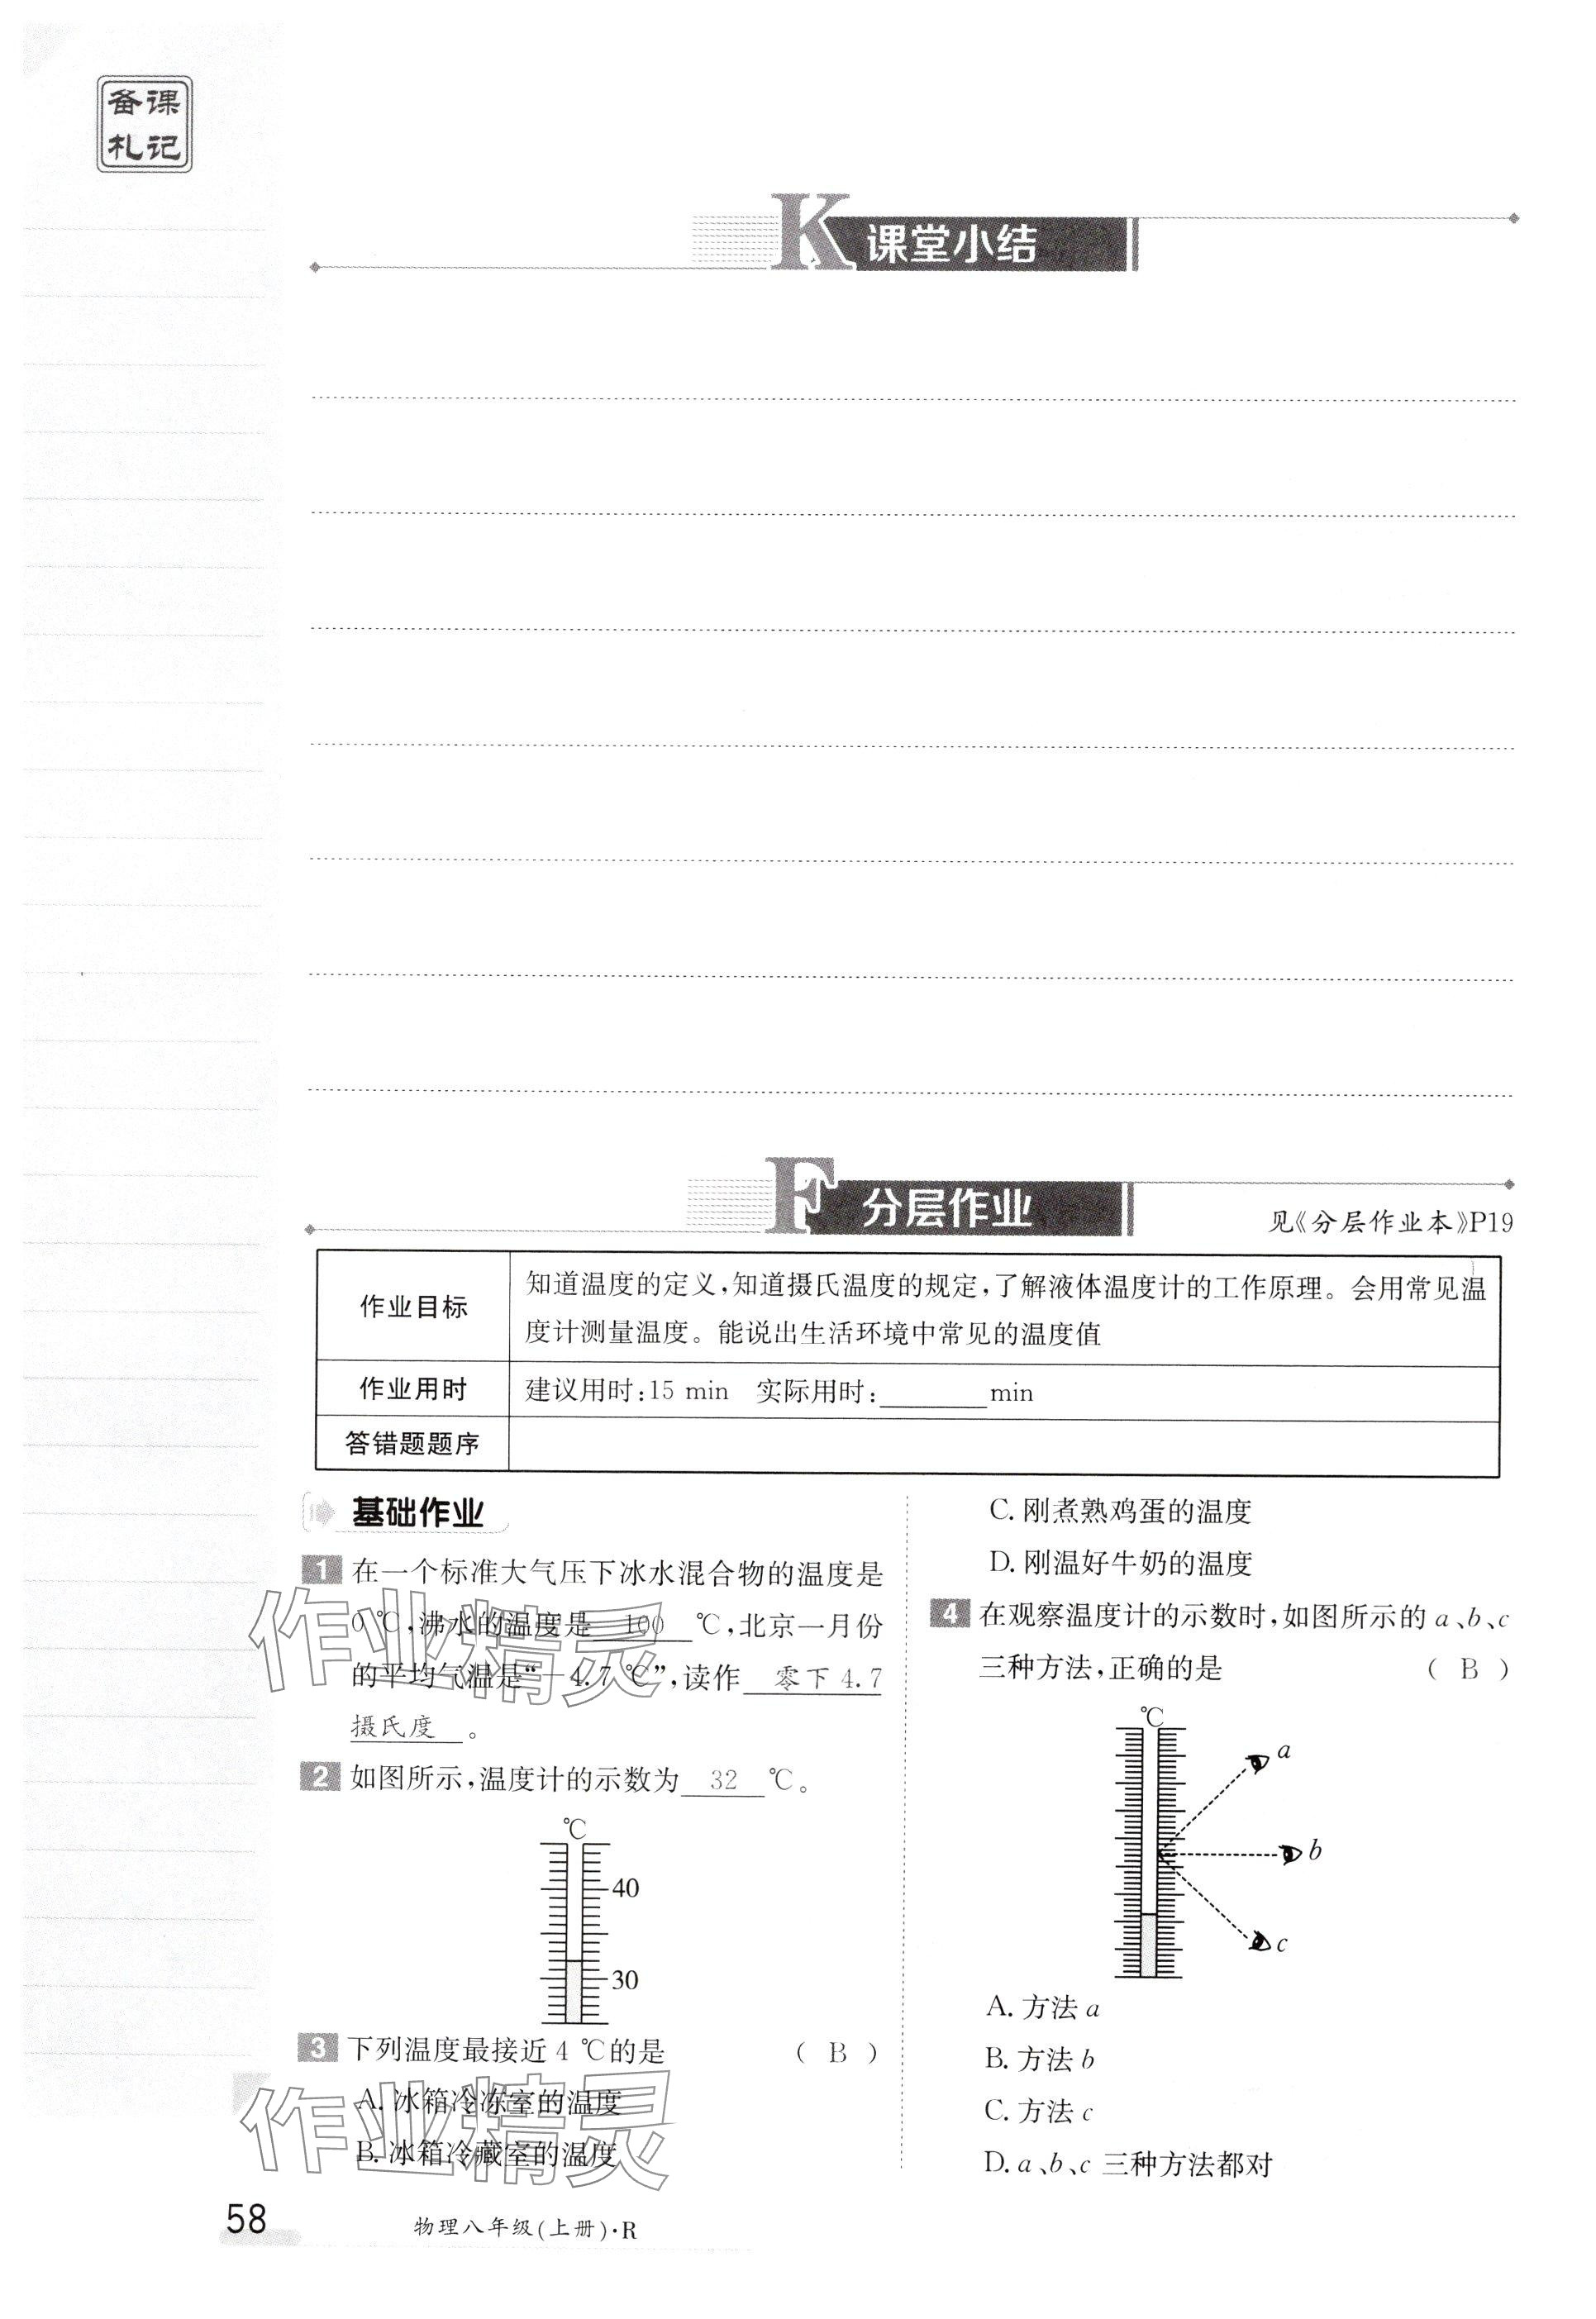 备课
札记
K 课堂小结
F 分层作业
见《分层作业本》P19
作业目标
知道温度的定义,知道摄氏温度的规定,了解液体温度计的工作原理。会用常见温
度计测量温度。能说出生活环境中常见的温度值
作业用时
建议用时:15 min 实际用时:________min
答错题题序
基础作业
1 在一个标准大气压下冰水混合物的温度是
0 ℃,沸水的温度是 100 ℃,北京一月份
的平均气温是“－4.7 ℃”,读作 零下 4.7
摄氏度 。
2 如图所示,温度计的示数为 32 ℃。
℃
40
30
3 下列温度最接近 4 ℃的是 ( B )
A. 冰箱冷冻室的温度
B. 冰箱冷藏室的温度
C. 刚煮熟鸡蛋的温度
D. 刚温好牛奶的温度
4 在观察温度计的示数时,如图所示的 a、b、c
三种方法,正确的是 ( B )
℃
a
b
c
A. 方法 a
B. 方法 b
C. 方法 c
D. a、b、c 三种方法都对
作业精灵
作业精灵
58
物理八年级(上册)·R